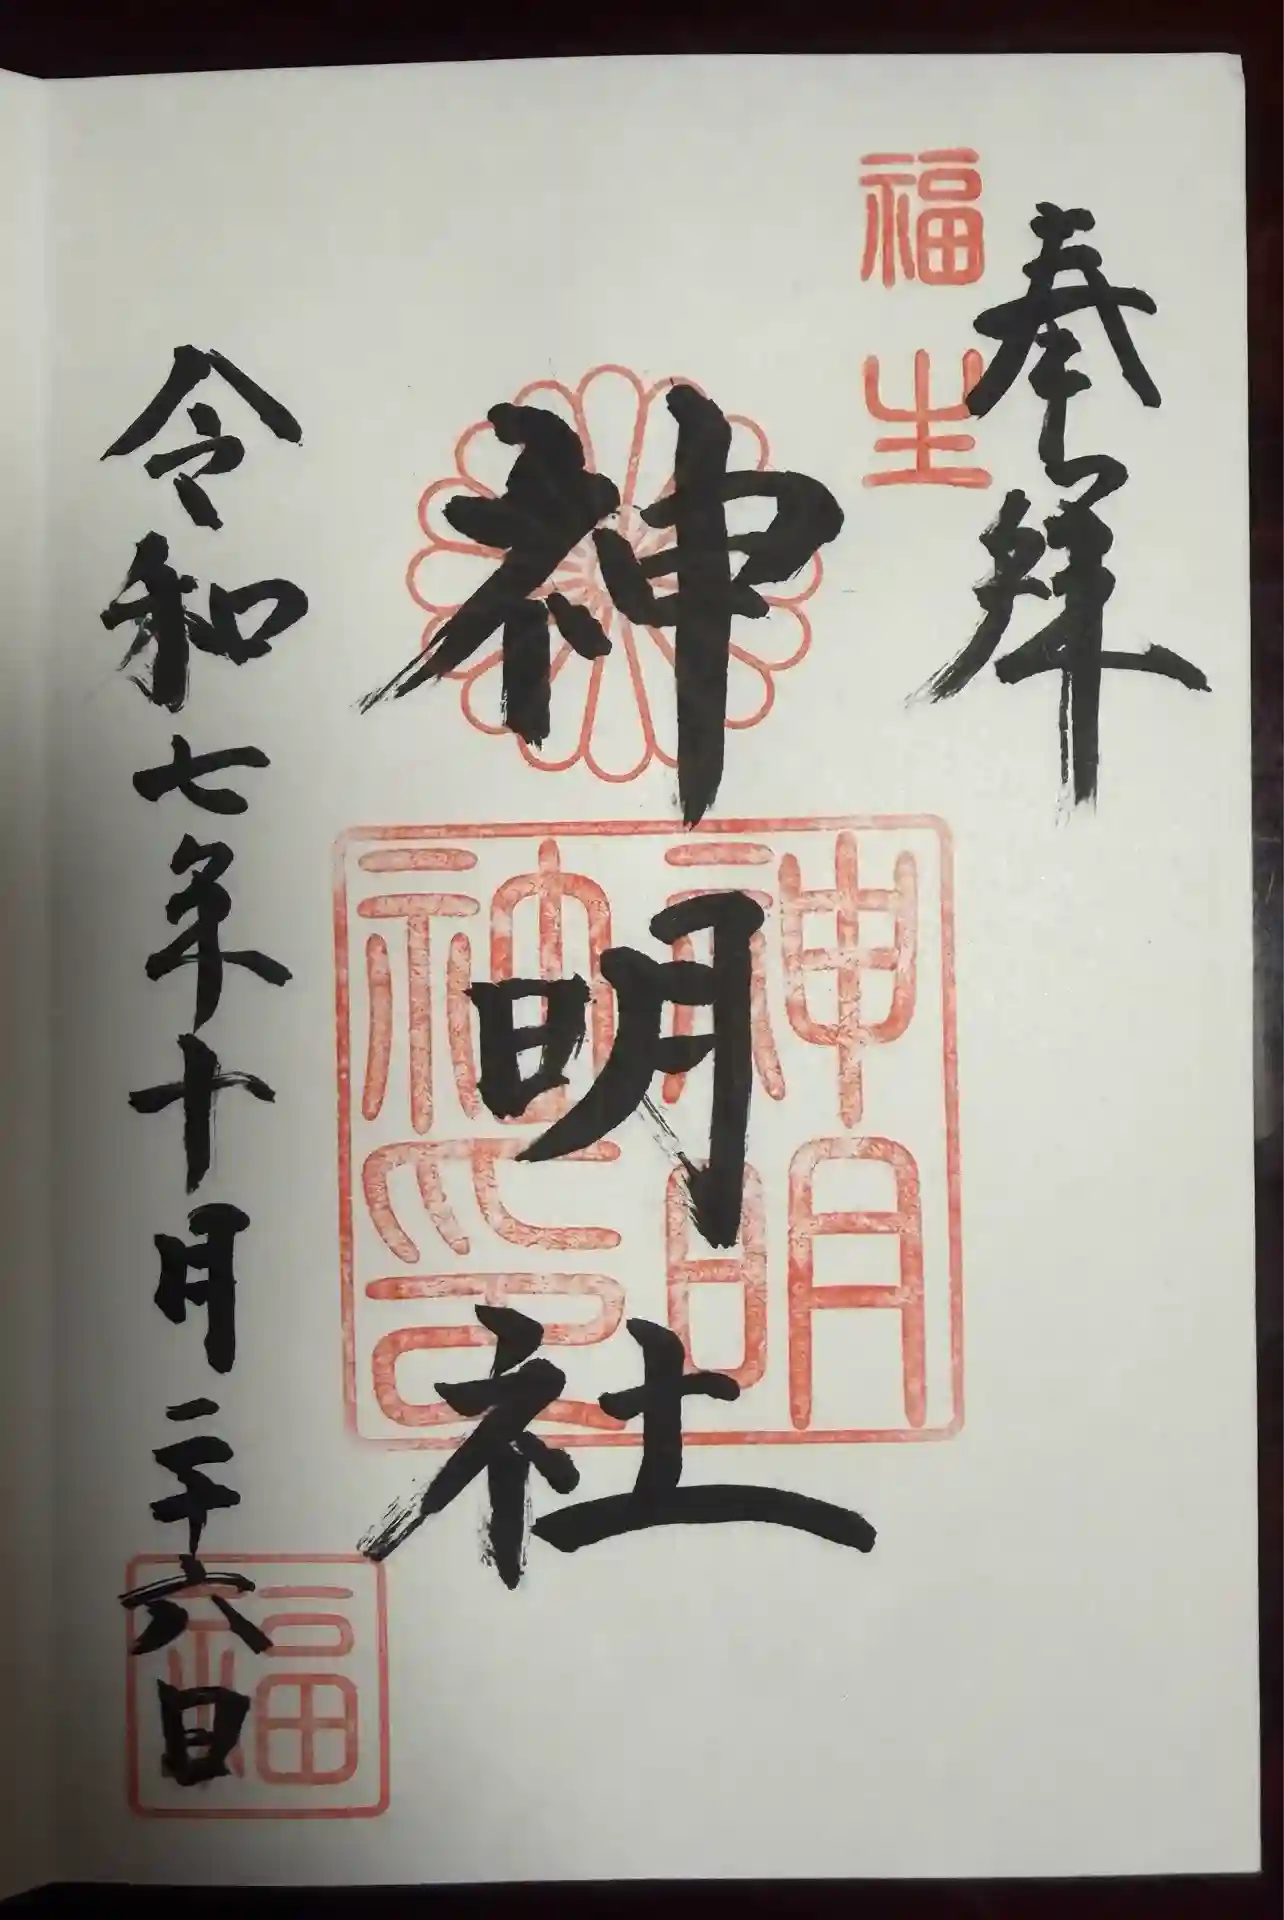 奉拝
福生
神明社
神明
神印
令和七年十月二十六日
福